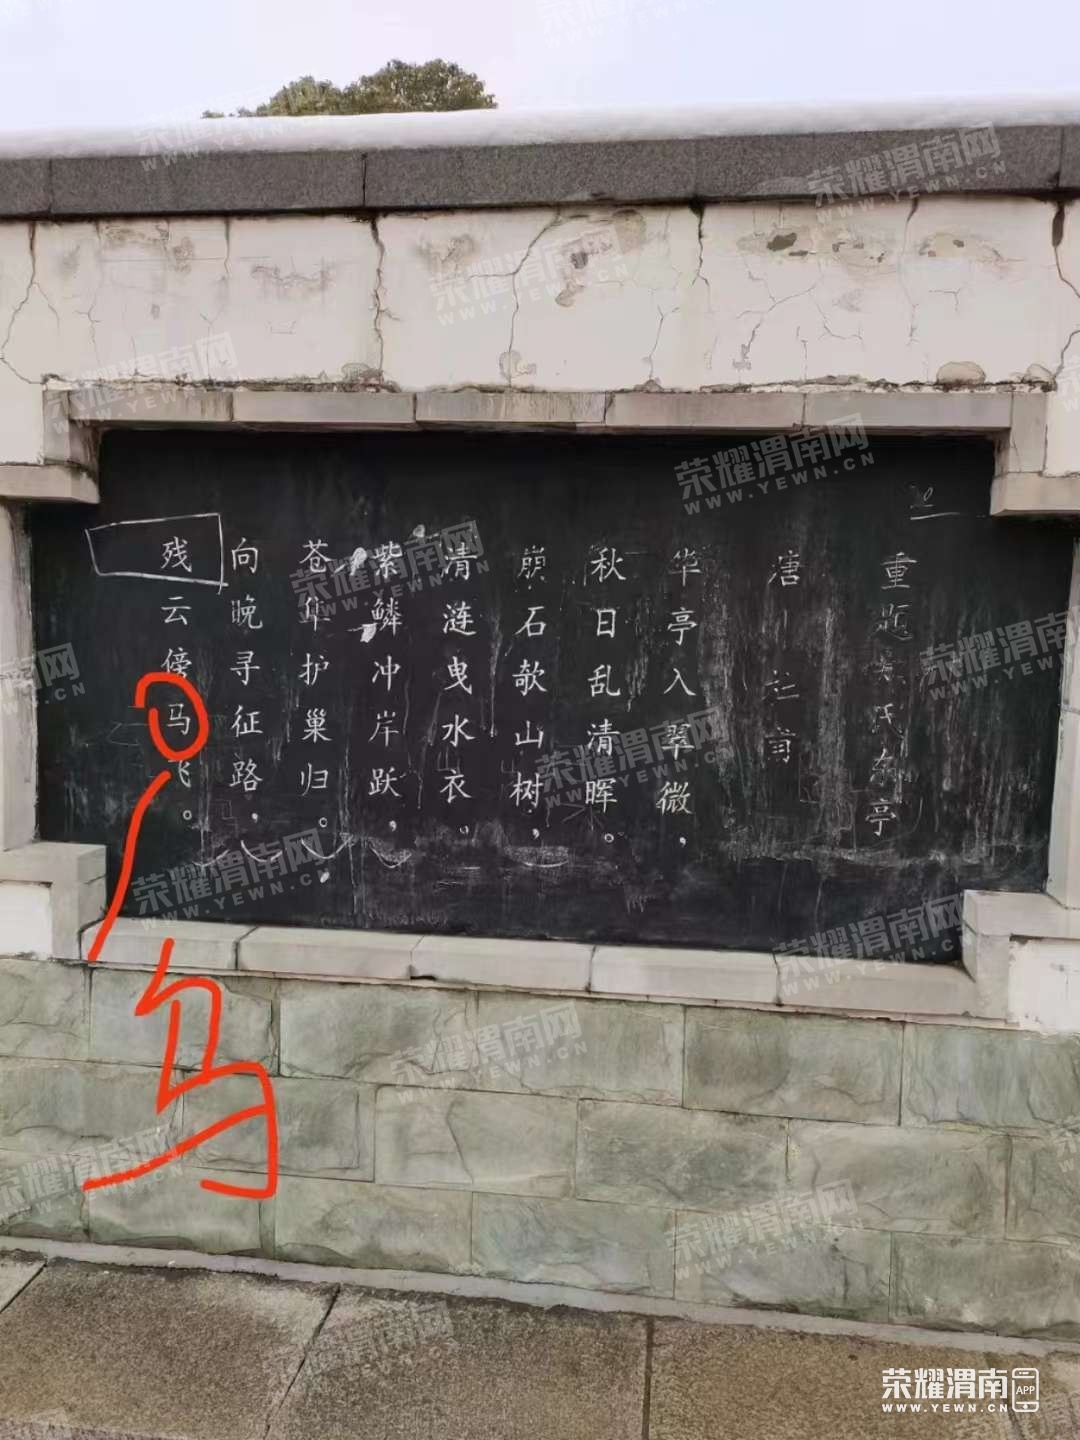 重题郑氏东亭
唐｜杜甫
华亭入翠微，
秋日乱清晖。
崩石欹山树，
清涟曳水衣。
紫鳞冲岸跃，
苍隼护巢归。
向晚寻征路，
残云傍马飞。
乌
荣耀渭南网
WWW.YEWN.CN
荣耀渭南 APP
WWW.YEWN.CN